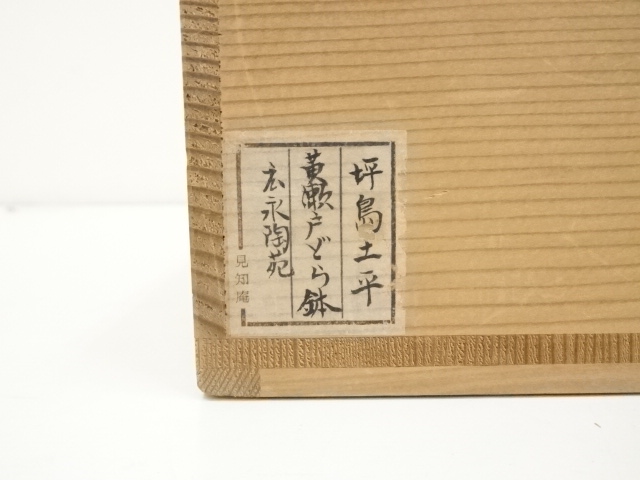 坪島土平
黄瀬戸どら鉢
広永陶苑
見知庵